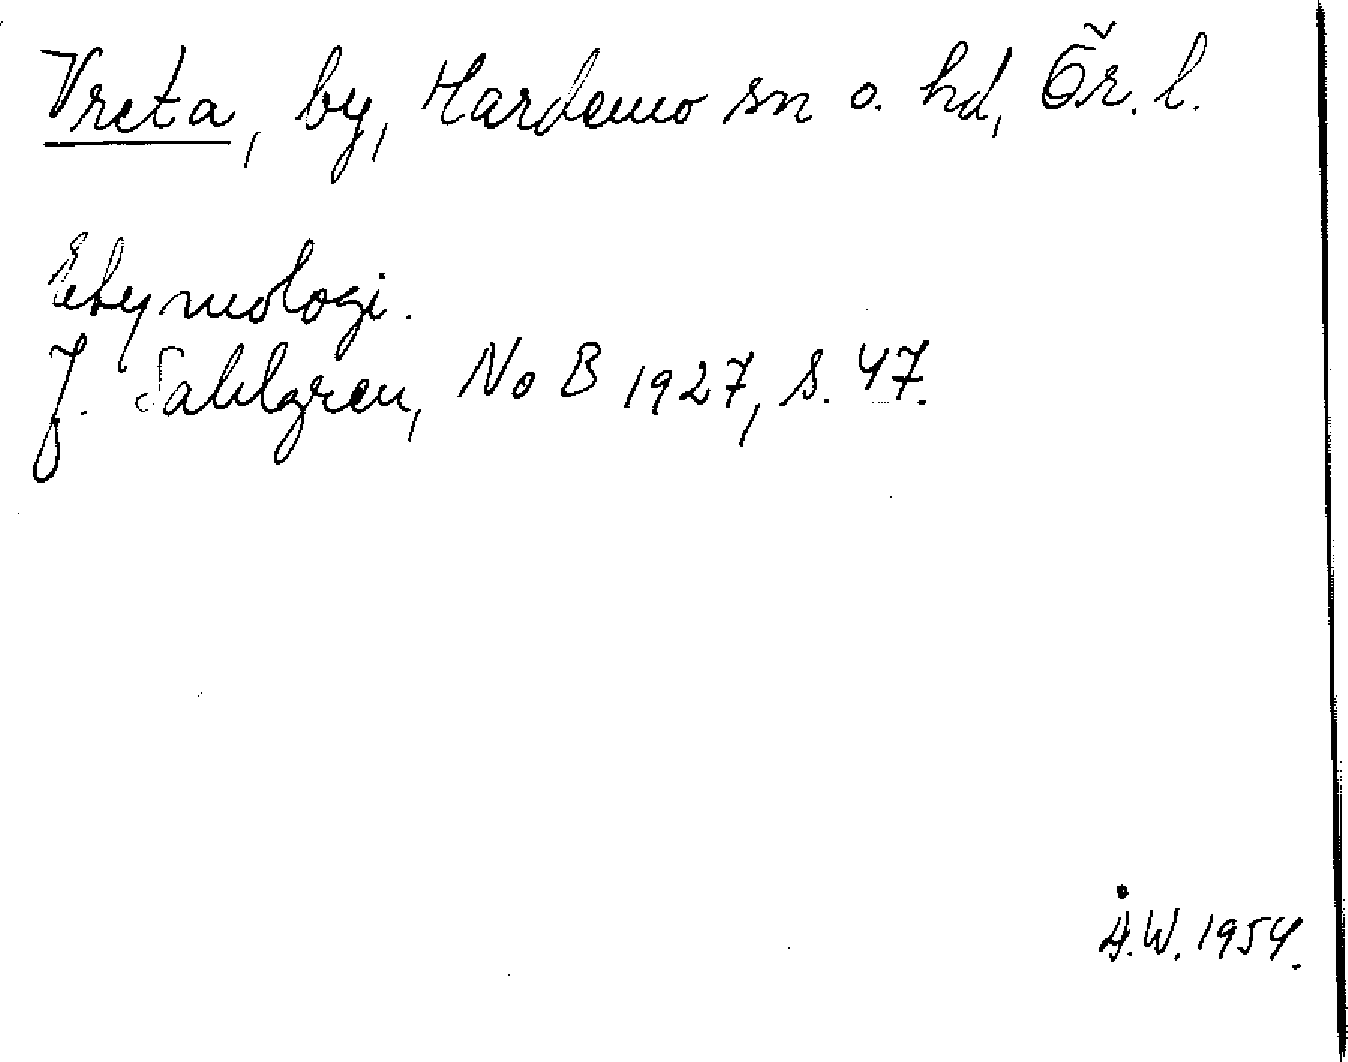 Vreta, by, Hardemo sn o. hd, Ör. l.
Etymologi.
J. Sahlgren, NoB 1927, s. 47.
Å.W. 1954.